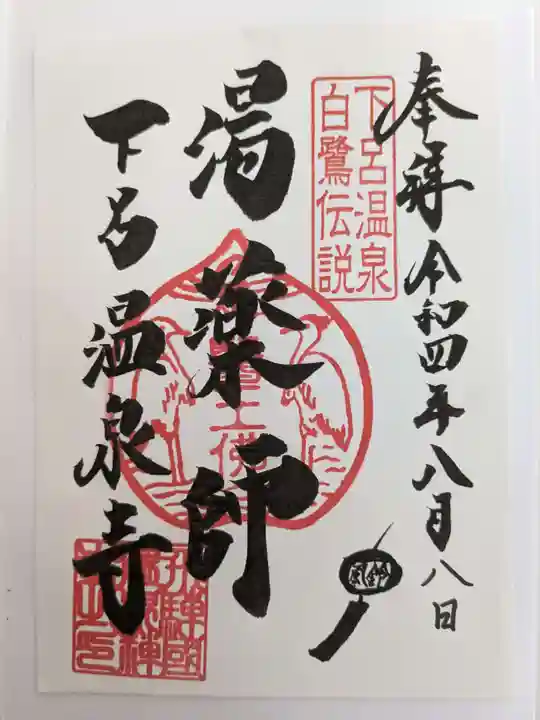 奉拝 令和四年八月八日
下呂温泉
白鷺伝説
湯薬師
下呂温泉寺
風鈴